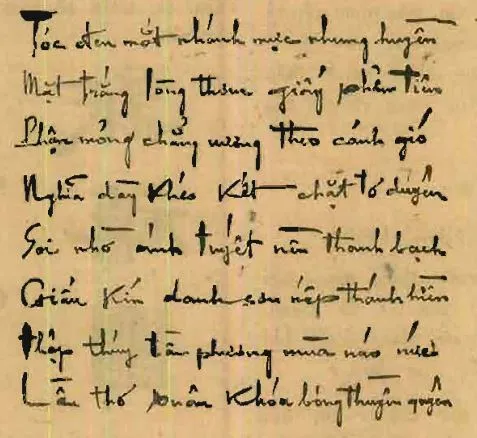 Tóc đen mót nhánh mực nhung huyền
Mặt trắng lồng thơm giấy phấn tiên
Phận mỏng chẳng vương theo cánh gió
Nghĩa dày khéo kết chặt tơ duyên
Soi nhờ ánh tuyết nền thanh bạch
Giấu kín danh sơn nếp thánh hiền
thập thúy tầm phương mùa náo nức
Lần thơ xuân khóa bóng thuyền quyên